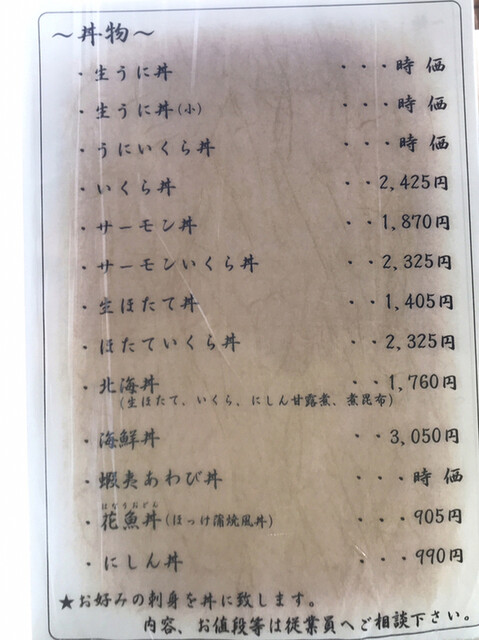 ～丼物～
・生うに丼 ・・・時価
・生うに丼(小) ・・・時価
・うにいくら丼 ・・・時価
・いくら丼 ・・2,425円
・サーモン丼 ・・1,870円
・サーモンいくら丼 ・・2,325円
・生ほたて丼 ・・1,405円
・ほたていくら丼 ・・2,325円
・北海丼 ・・1,760円
(生ほたて、いくら、にしん甘露煮、煮昆布)
・海鮮丼 ・・3,050円
・蝦夷あわび丼 ・・・時価
はなうおどん
・花魚丼(ほっけ蒲焼風丼) ・・・905円
・にしん丼 ・・・990円
★お好みの刺身を丼に致します。
内容、お値段等は従業員へご相談下さい。